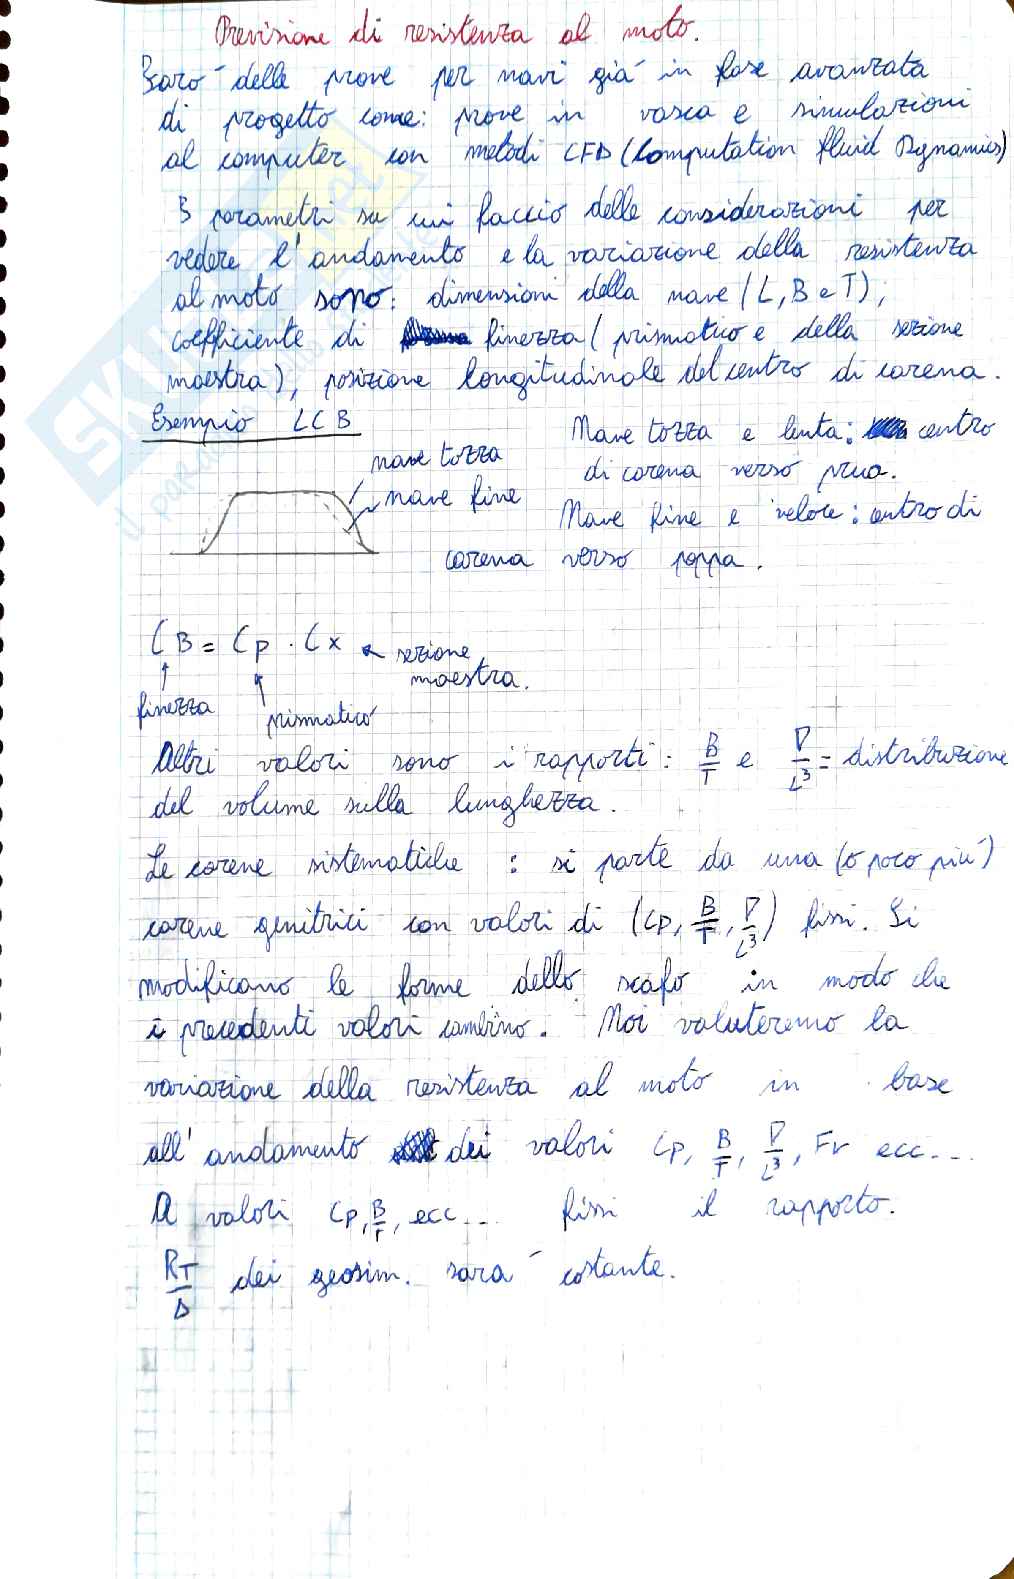 Previsione di resistenza al moto.
Farò delle prove per navi già in fase avanzata
di progetto come: prove in vasca e simulazioni
al computer con metodi CFD (Computation fluid Dynamics)
3 parametri su cui faccio delle considerazioni per
vedere l'andamento e la variazione della resistenza
al moto sono: dimensioni della nave (L, B e T);
coefficiente di finezza (prismatico e della sezione
maestra), posizione longitudinale del centro di carena.
Esempio LCB
nave tozza
nave fine
Nave tozza e lenta: centro
di carena verso prua.
Nave fine e veloce: centro di
carena verso poppa.
CB = Cp · Cx ← sezione
maestra.
↑ finezza
↑ prismatico
Altri valori sono i rapporti: B/T e ∇/L³ = distribuzione
del volume sulla lunghezza.
Le carene sistematiche: si parte da una (o poco più)
carene genitrici con valori di (Cp, B/T, ∇/L³) fissi. Si
modificano le forme dello scafo in modo che
i precedenti valori cambino. Noi valuteremo la
variazione della resistenza al moto in base
all'andamento dei valori Cp, B/T, ∇/L³, Fr ecc...
A valori Cp, B/T, ecc... fissi il rapporto.
RT/Δ dei geosim. sarà costante.